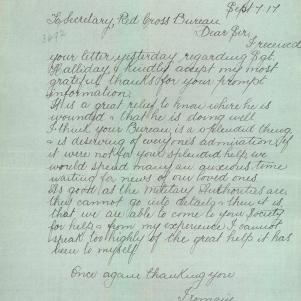 Sept 7.17
To Secretary, Red Cross Bureau
3692
Dear Sir,
I received
your letter yesterday regarding Sgt.
Halliday, & kindly accept my most
grateful thanks for your prompt
information.
It is a great relief to know where he is
wounded & that he is doing well
I think your Bureau is a splendid thing
& is deserving of everyones admiration. If
it were not for your splendid help, we
would spend many an anxious time
waiting for news of our loved ones.
As good as the Military Authorities are,
they cannot go into details & then it is
that we are able to come to your Society
for help & from my experience I cannot
speak too highly of the great help it has
been to myself
Once again thanking you
I remain